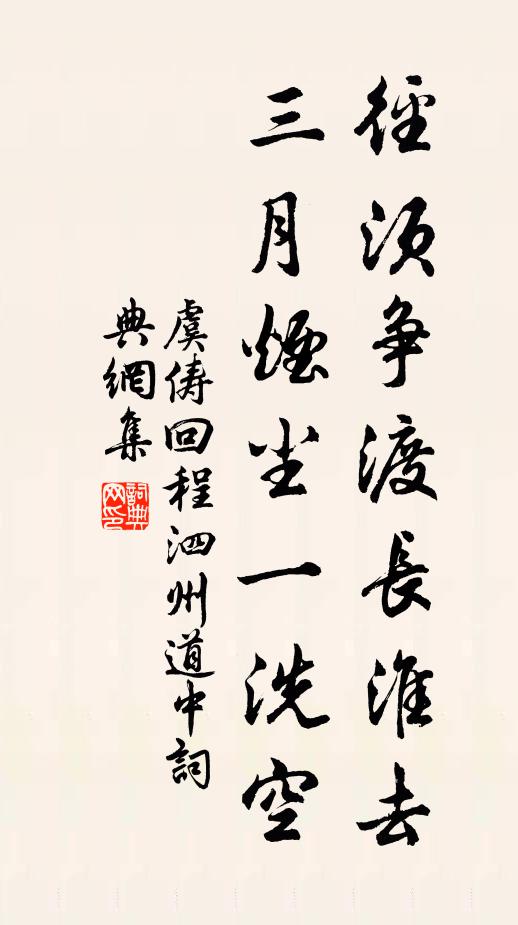 徑須爭渡長淮去
三月煙塵一洗空
虞儔回程泗州道中詞
典網集
詞典
网印